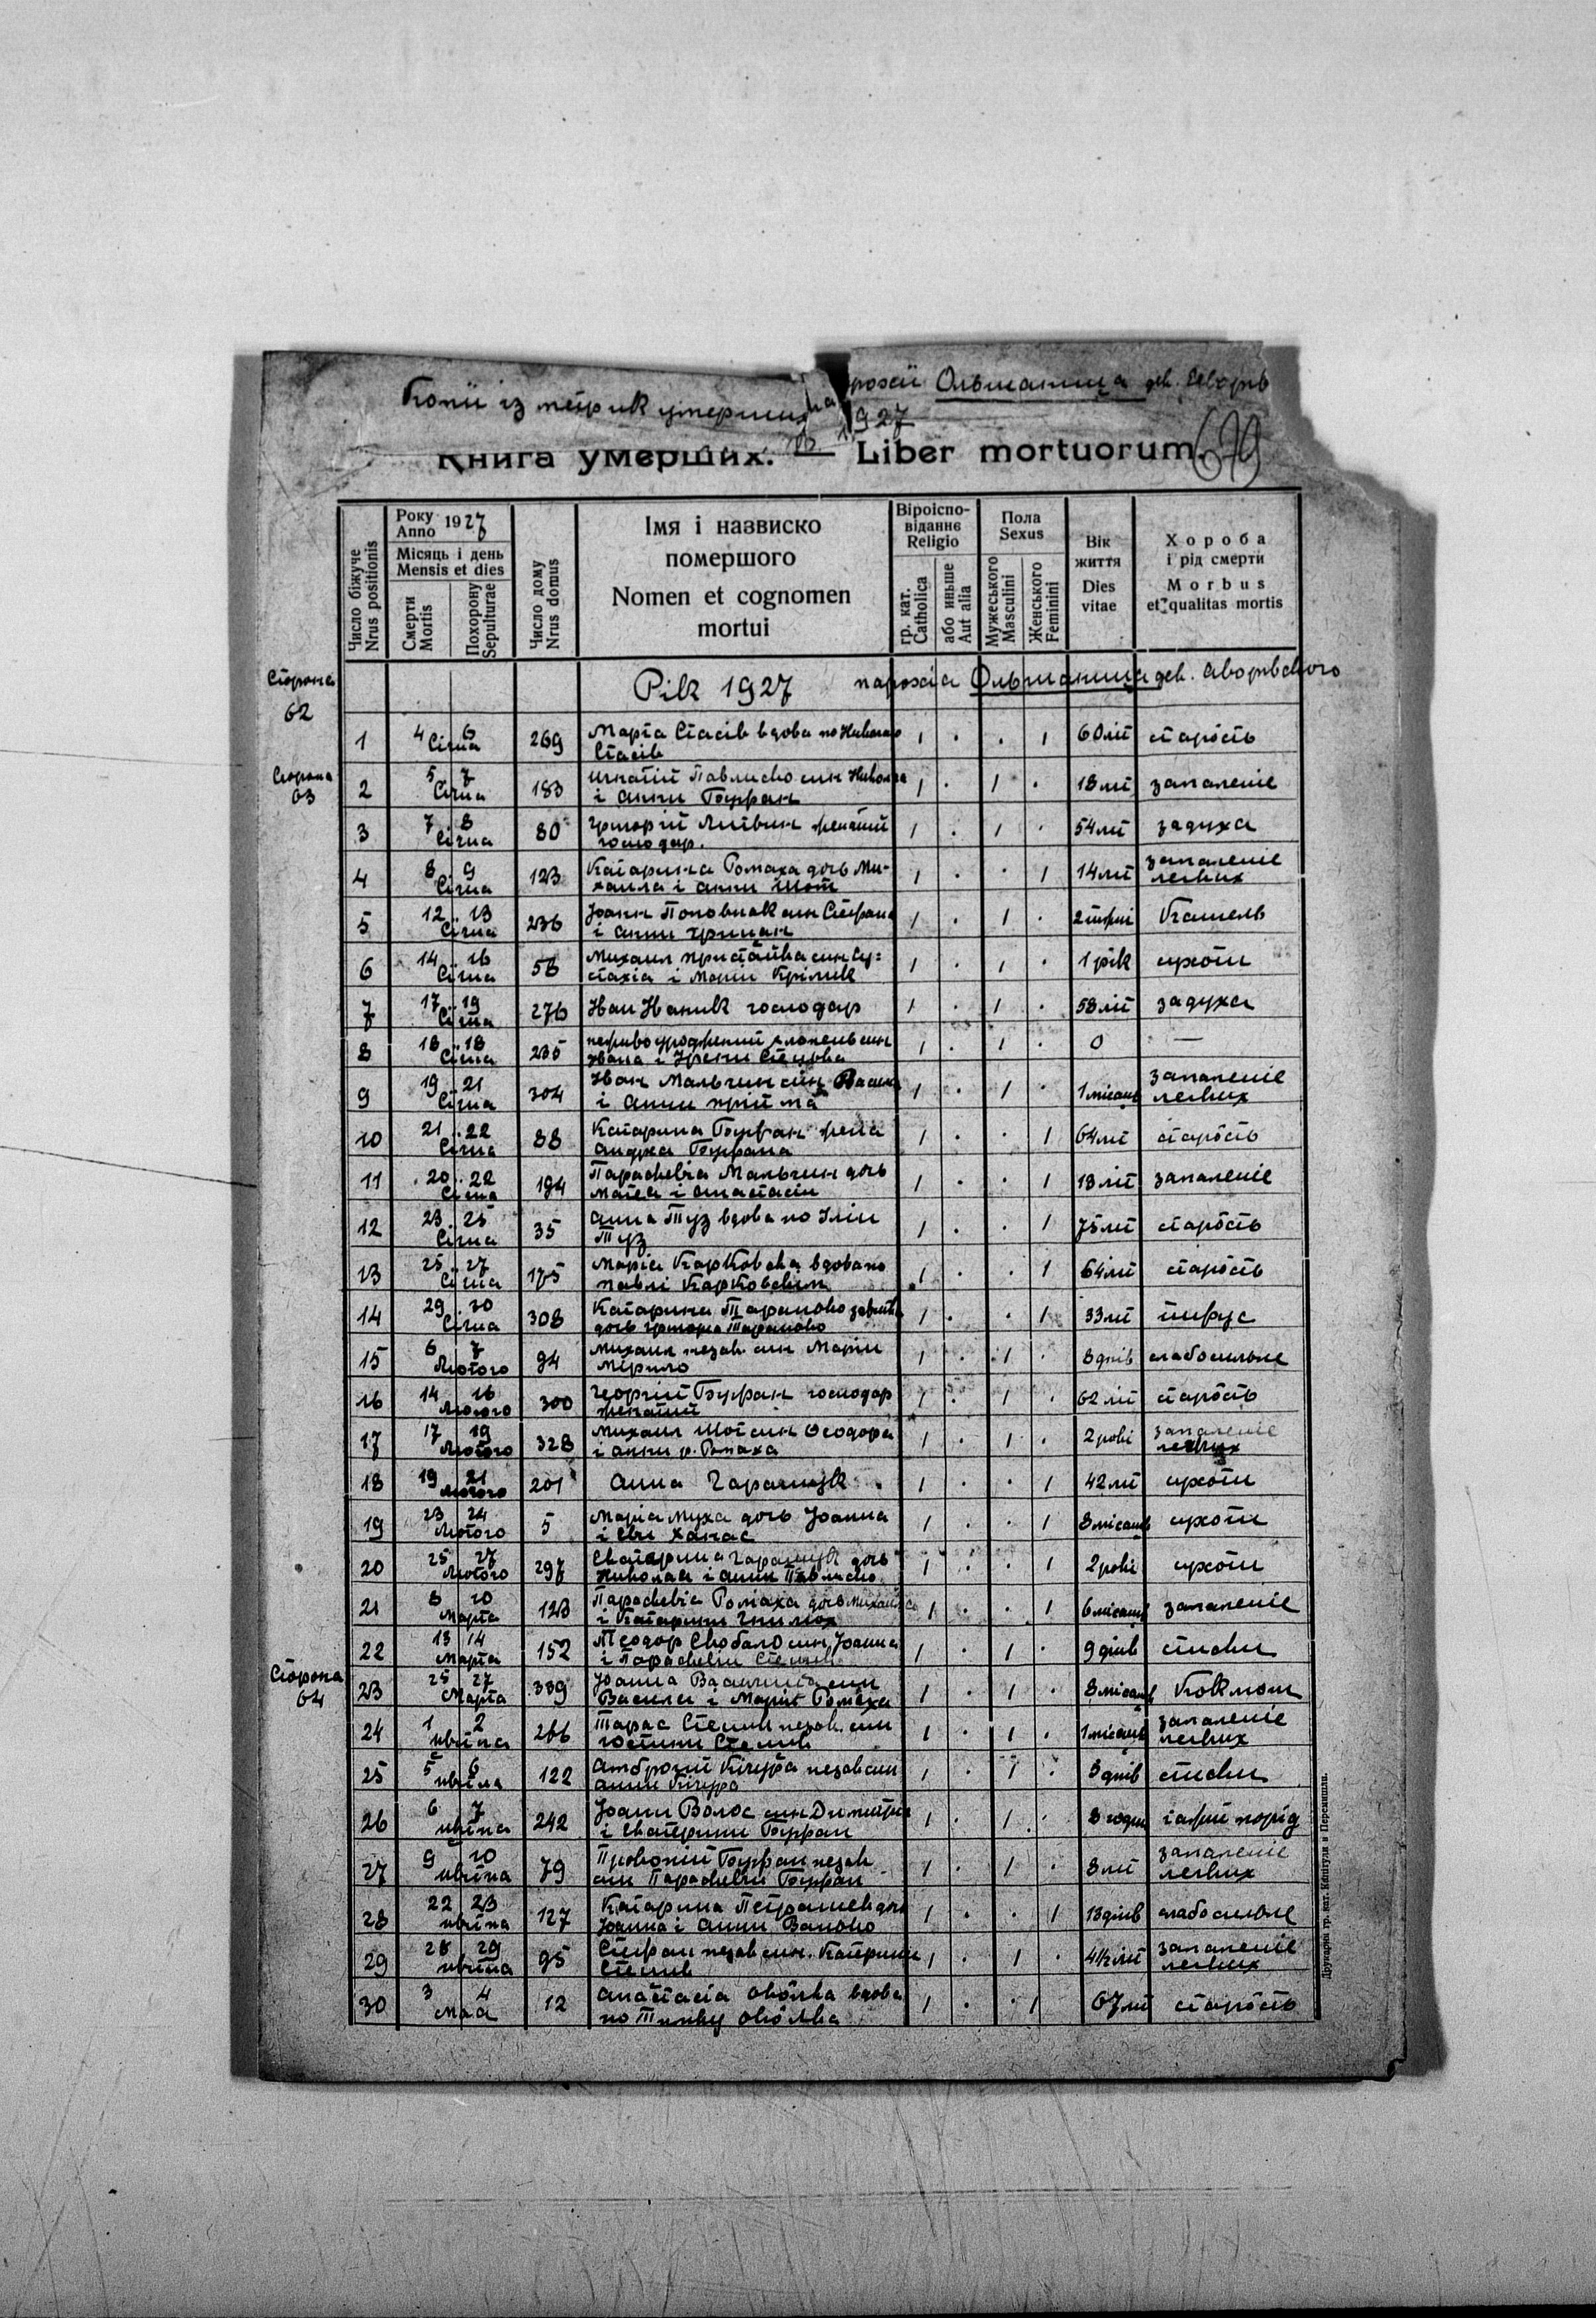 Копії із метрик умерших парохії Ольшаниця дек. Яворів
1927
679
Книга умерших. — Liber mortuorum.
Число біжуче
Nrus positionis
Року
Anno 1927
Місяць і день
Mensis et dies
Смерти
Mortis
Похорону
Sepulturae
Число дому
Nrus domus
Імя і назвиско
помершого
Nomen et cognomen
mortui
Віроіспо-
віданнє
Religio
гр. кат.
Catholica
або иньше
Aut alia
Пола
Sexus
Мужеського
Masculini
Женського
Feminini
Вік
життя
Dies
vitae
Хороба
і рід смерти
Morbus
et qualitas mortis
Сторона
62
Рік 1927 парохія Ольшаниця дек. Яворівского
1 4 6 Січня 269 Марта Стасів вдова по Николаю
Стасів 1 . . 1 60 літ старість
Сторона
63
2 5 7 Січня 183 Игнатій Павлиско син Николая
і Анни Боуфан 1 . 1 . 18 літ запаленіє
3 7 8 Січня 80 Григорій Литвин женатий
господар. 1 . 1 . 54 літ задуха
4 8 9 Січня 123 Катарина Ромаха дочь Ми-
хаила і Анни Шот 1 . . 1 14 літ запаленіє
легких
5 12 13 Січня 236 Іоанн Половчак син Стефана
і Анни 1 . 1 . 2 Кашель
6 14 16 Січня 56 Михаил Пристайка син Еу-
стахія і Марії 1 . 1 . 1 рік сухоти
7 17 19 Січня 276 Иван Иваник господар 1 . 1 . 58 літ задуха
8 18 18 Січня 235 неживо уроджений хлопець син
Ивана і Ірени 1 . 1 . 0 —
9 19 21 Січня 304 Иван Мальчин син Василя
і Анни Прийма 1 . 1 . 1 місяць запаленіє
легких
10 21 22 Січня 88 Катарина Боуфан жена
Андрея Боуфана 1 . . 1 64 літ старість
11 20 22 Січня 194 Параскевія Мальчин дочь
Матея і Анастасії 1 . . 1 18 літ запаленіє
12 23 25 Січня 35 Анна Туз вдова по Ілії
Туз 1 . . 1 75 літ старість
13 25 27 Січня 175 Марія Карковска вдова по
Павлі Карковским 1 . . 1 64 літ старість
14 29 30 Січня 308 Катарина Тарапоно
дочь Григорія Тарапоно 1 . . 1 33 літ тифус
15 6 7 Лютого 94 Михаил незак. син Марії
Мірило 1 . 1 . 8 днів слабосильне
16 14 16 Лютого 300 Георгій Боуфан господар
женатий 1 . 1 . 62 літ старість
17 17 19 Лютого 328 Михаил Шот син Феодора
і Анни р. Ромаха 1 . 1 . 2 рокі запаленіє
легких
18 19 21 Лютого 201 Анна Гаращук 1 . . 1 42 літ сухоти
19 23 24 Лютого 5 Марія Муха дочь Іоанна
і Еви Ханас 1 . . 1 8 місяців сухоти
20 25 27 Лютого 297 Екатерина Гаращук дочь
Николая і Анни Павлиско 1 . . 1 2 рокі сухоти
21 8 10 Марта 123 Параскевія Ромаха дочь Михаила
і Катарини 1 . . 1 6 місяців запаленіє
22 13 14 Марта 152 Теодор Скобало син Іоанна
і Параскевії 1 . 1 . 9 днів
Сторона
64
23 25 27 Марта 339 Іоанна син
Василя і Марії Ромаха 1 . 1 . 8 місяців Коклюш
24 1 2 цвітня 266 Тарас незак. син
1 . 1 . 1 місяць запаленіє
легких
25 5 6 цвітня 122 Амброзій Кічура незак син
Анни Кічура 1 . 1 . 3 днів
26 6 7 цвітня 242 Іоанн Волос син Димитрія
і Екатерини Боуфан 1 . 1 . 8 годин порід
27 9 10 цвітня 79 Прокопій Боуфан незак
син Параскевії Боуфан 1 . 1 . 8 літ запаленіє
легких
28 22 23 цвітня 127 Катарина дочь
Іоанна і Анни 1 . . 1 13 днів слабосильне
29 28 29 цвітня 95 Стефан незак син. Катерини
1 . 1 . 4½ літ запаленіє
легких
30 3 4 Мая 12 Анастасія вдова
по 1 . . 1 67 літ старість
Друкарня гр. кат. Капітули в Перемишли.